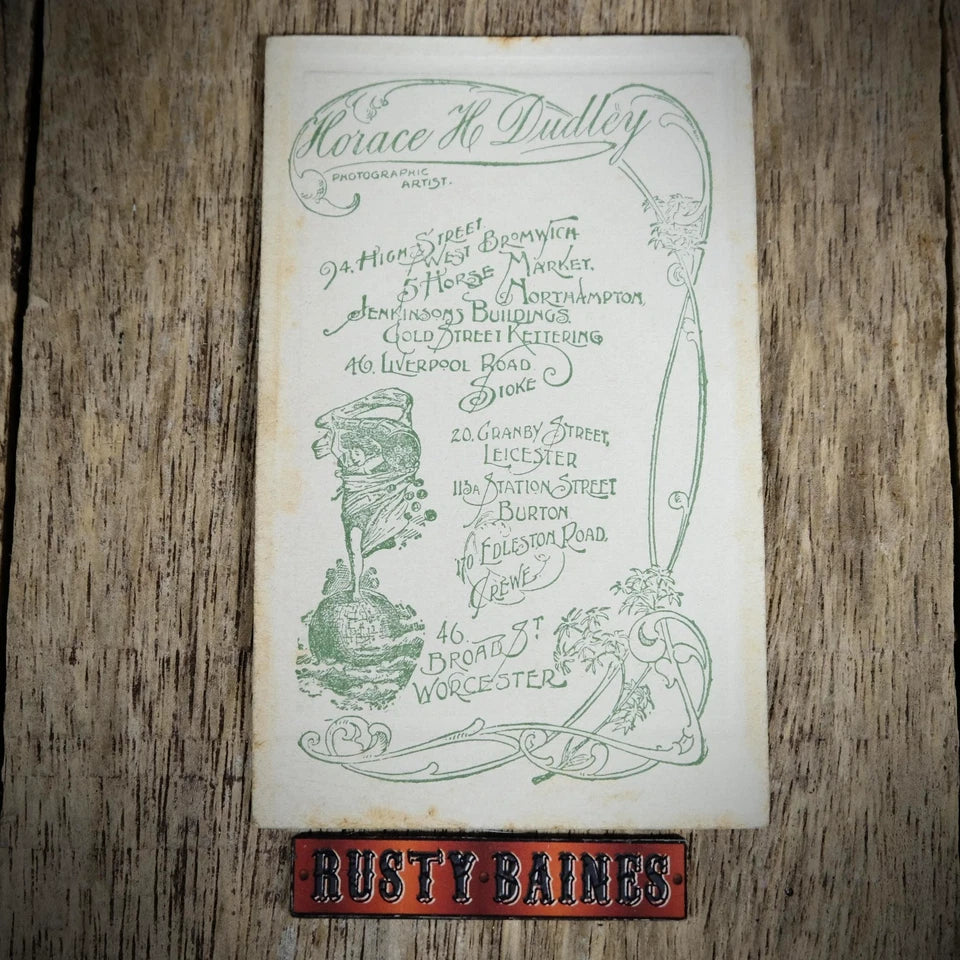 Horace H Dudley
PHOTOGRAPHIC
ARTIST.
94. HIGH STREET
WEST BROMWICH
5 HORSE MARKET.
NORTHAMPTON,
JENKINSONS BUILDINGS.
GOLD STREET KETTERING
46. LIVERPOOL ROAD
STOKE
20. GRANBY STREET,
LEICESTER
113A STATION STREET
BURTON
170 EDLESTON ROAD,
CREWE.
46.
BROAD ST
WORCESTER
RUSTY·BAINES